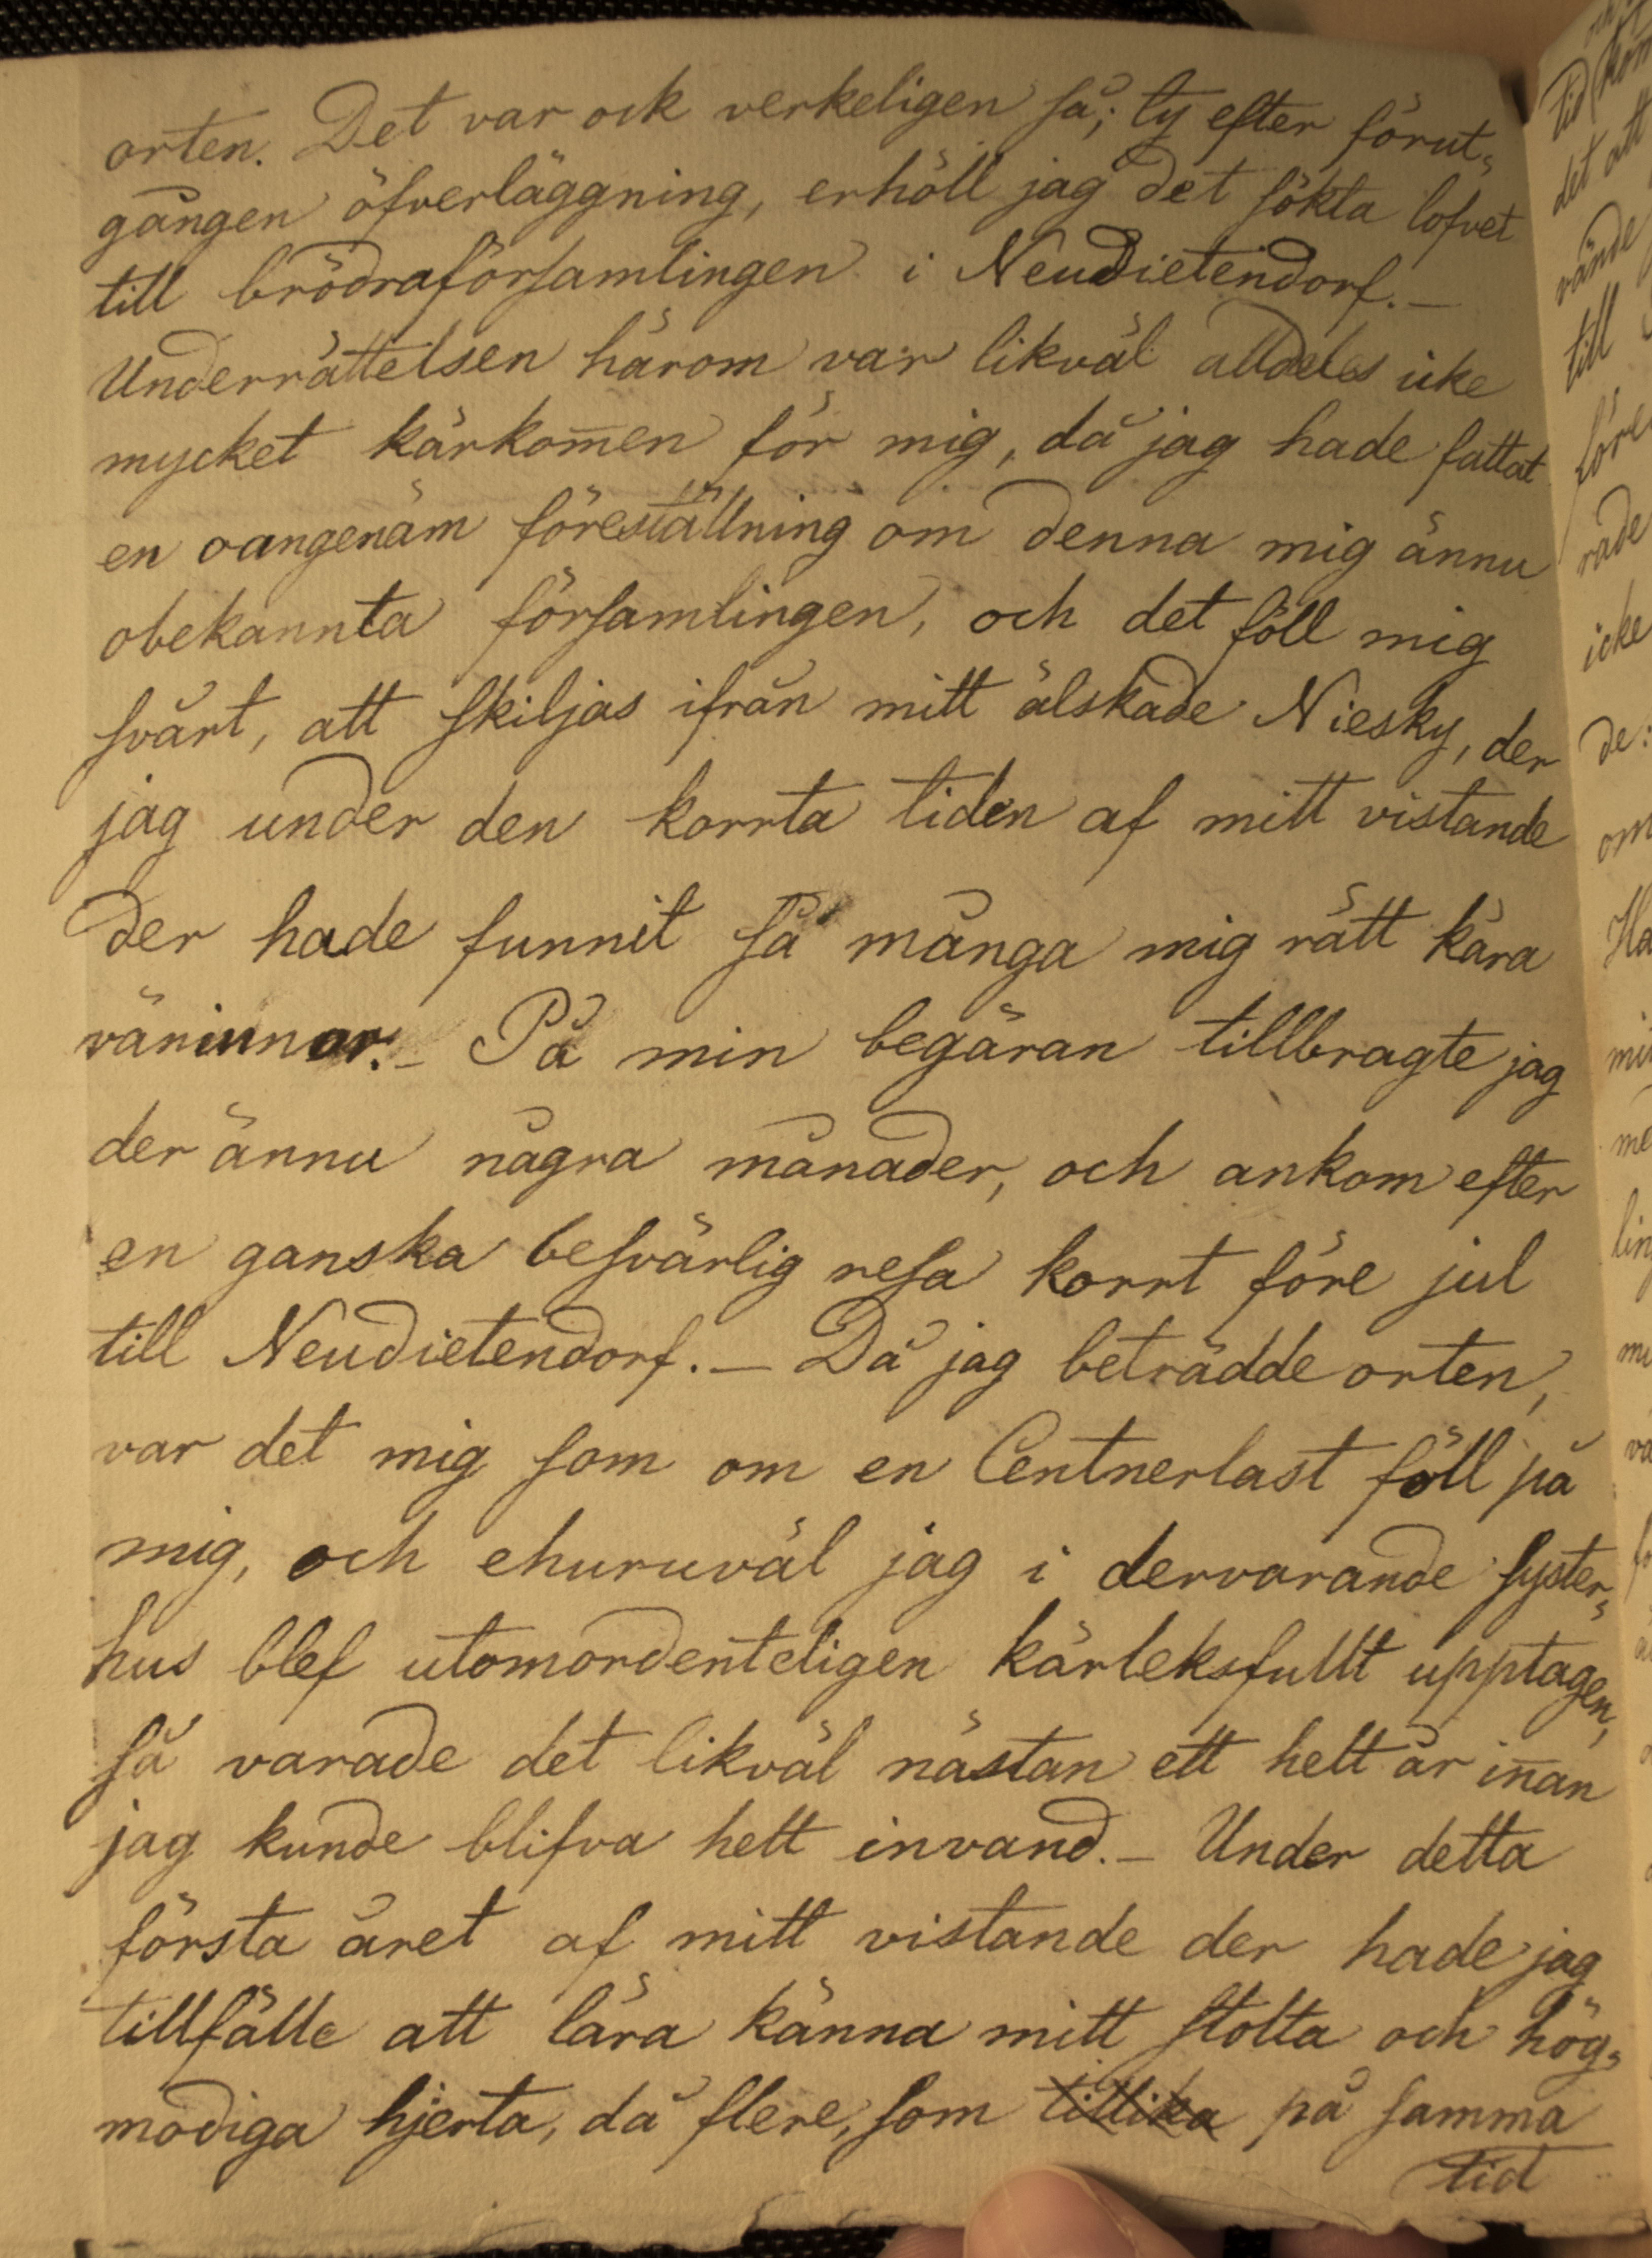 orten. Det var ock verkeligen så; ty efter förut-
gången öfverläggning, erhöll jag det sökta lofvet
till brödraförsamlingen i Neudietendorf. –
Underrättelsen härom var likväl alldeles icke
mycket kärkom̄en för mig, då jag hade fattat
en oangenäm föreställning om denna mig ännu
obekannta församlingen, och det föll mig
svårt, att skiljas ifrån mitt älskade Niesky, der
jag under den korrta tiden af mitt vistande
der hade funnit så många mig rätt kära
väninnor. – På min begäran tillbragte jag
der ännu några månader, och ankom efter
en ganska besvärlig resa korrt före jul
till Neudietendorf. – Då jag beträdde orten,
var det mig som om en Centnerlast föll på
mig, och ehuruväl jag i dervarande syster-
hus blef utomordenteligen kärleksfullt upptagen,
så varade det likväl nästan ett helt år in̄an
jag kunde blifva helt invand. – Under detta
första året af mitt vistande der hade jag
tillfälle att lära känna mitt stolta och hög-
modiga hjerta, då flere, som tillika på samma
tid